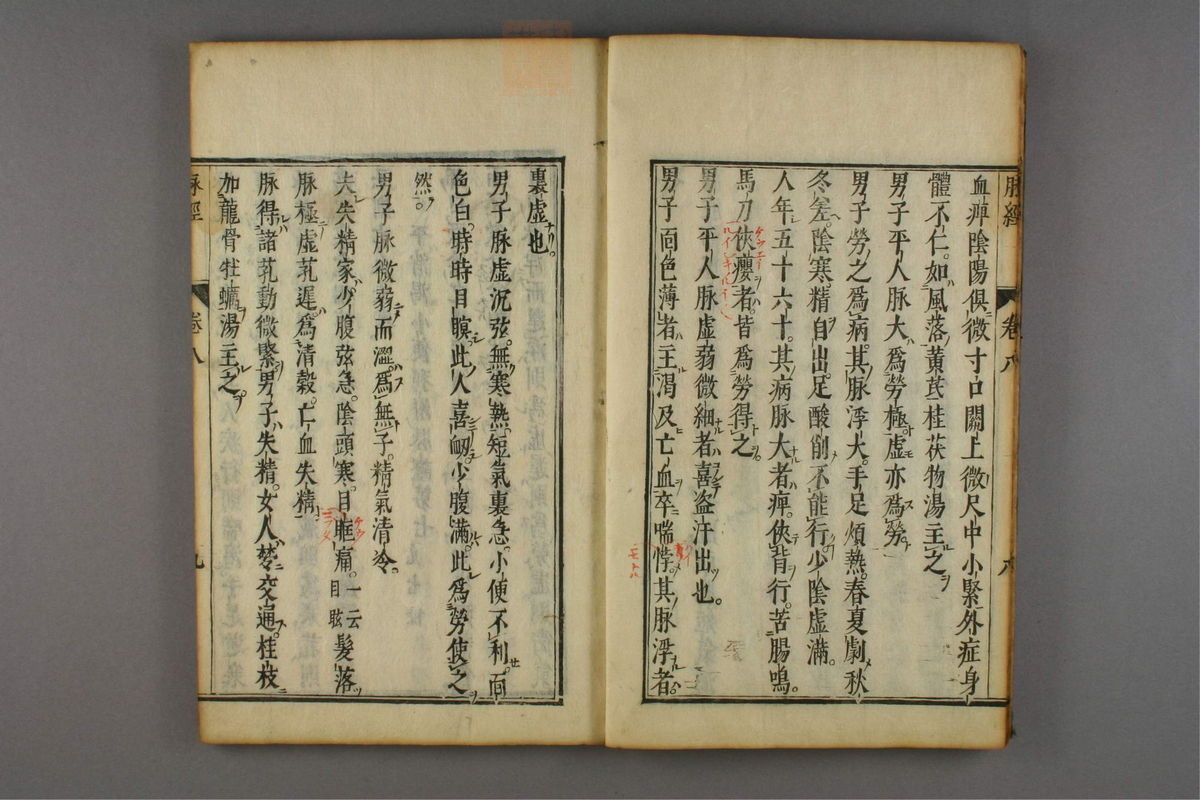 脉經 卷八 八
血痺陰陽俱微寸口關上微尺中小緊外症身
體不仁如風落黄芪桂茯物湯主之
男子平人脉大爲勞極虛亦爲勞
男子勞之爲病其脉浮大手足煩熱春夏劇秋
冬差陰寒精自出足酸削不能行少陰虛滿
人年五十六十其病脉大者痺俠背行苦腸鳴
馬刀俠癭者皆爲勞得之
男子平人脉虛弱微細者喜盗汗出也
男子面色薄者主渴及亡血卒喘悸其脉浮者
裏虛也
男子脉虛沉弦無寒熱短氣裏急小便不利面
色白時時目瞑此人喜衂少腹滿此爲勞使之
然
男子脉微弱而澀爲無子精氣清冷
夫失精家少腹弦急陰頭寒目眶痛一云目眩髮落
脉極虛芤遲爲清穀亡血失精
脉得諸芤動微緊男子失精女人夢交通桂枝
加龍骨牡蠣湯主之
脉經 卷八 九